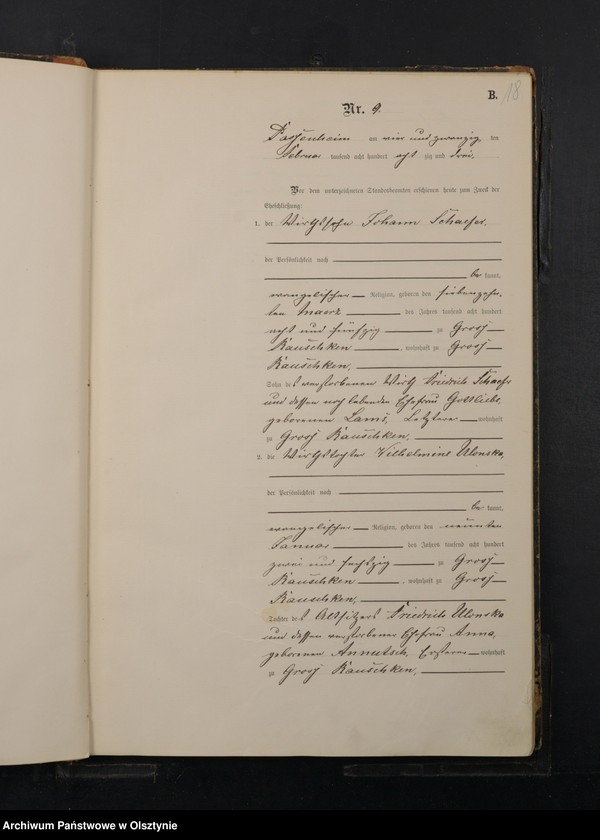 B. 18
Nr. 9.
Passenheim am vier und zwanzig, ten
Februar tausend acht hundert acht zig und drei.
Vor dem unterzeichneten Standesbeamten erschienen heute zum Zweck der
Eheschließung:
1. der Wirthssohn Johann Schaefer,
der Persönlichkeit nach
be kannt,
evangelischer Religion, geboren den siebenzehn,
ten Maerz des Jahres tausend acht hundert
acht und fünfzig zu Grosz
Rauschken, wohnhaft zu Grosz
Rauschken,
Sohn des verstorbenen Wirth Friedrich Schaefer
und dessen noch lebenden Ehefrau Gottliebe,
geborenen Lams, Letztere wohnhaft
zu Grosz Rauschken,
2. die Wirthstochter Wilhelmine Ulonska,
der Persönlichkeit nach
be kannt,
evangelischer Religion, geboren den neunten
Januar des Jahres tausend acht hundert
zwei und sechszig zu Grosz
Rauschken, wohnhaft zu Grosz
Rauschken,
Tochter des Altsitzers Friedrich Ulonska
und dessen verstorbener Ehefrau Anna,
geborenen Annutsch, Ersterer wohnhaft
zu Grosz Rauschken,
Archiwum Państwowe w Olsztynie